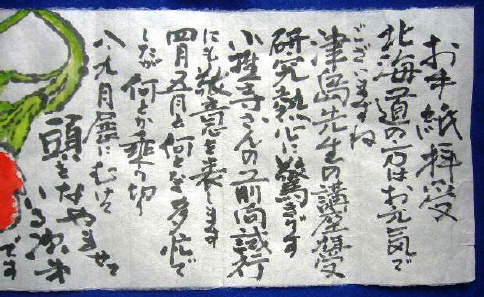 お手紙拝受
北海道の方はお元気で
ございますね
津島先生の講座拝受
研究熱心に驚きます
小椎寺さんの前向試行
にも敬意を表します
四月五月と何となく多忙で
したが何とか乗り切り
八、九月展にむけて
頭をなやませて
いる
です